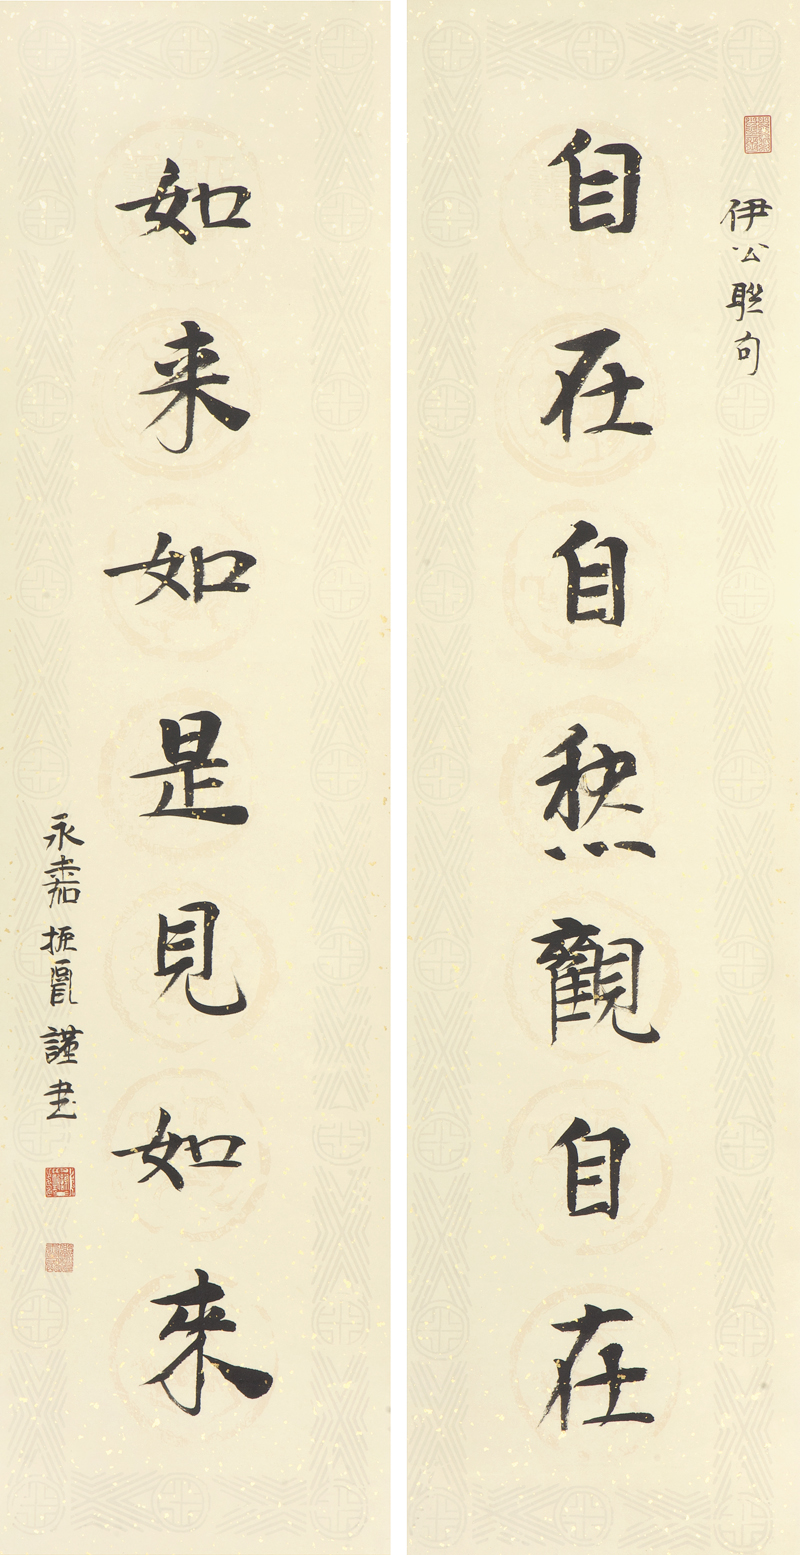 伊公聯句
自在自然觀自在
如来如是見如來
永嘉振
謹書